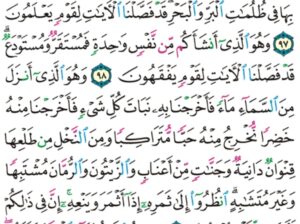 بِهَا فِي ظُلُمَٰتِ ٱلۡبَرِّ وَٱلۡبَحۡرِۗ قَدۡ فَصَّلۡنَا ٱلۡأٓيَٰتِ لِقَوۡمٖ يَعۡلَمُونَ
٩٧ وَهُوَ ٱلَّذِيٓ أَنشَأَكُم مِّن نَّفۡسٖ وَٰحِدَةٖ فَمُسۡتَقَرّٞ وَمُسۡتَوۡدَعٞۗ
قَدۡ فَصَّلۡنَا ٱلۡأٓيَٰتِ لِقَوۡمٖ يَفۡقَهُونَ ٩٨ وَهُوَ ٱلَّذِيٓ أَنزَلَ
مِنَ ٱلسَّمَآءِ مَآءٗ فَأَخۡرَجۡنَا بِهِۦ نَبَاتَ كُلِّ شَيۡءٖ فَأَخۡرَجۡنَا مِنۡهُ
خَضِرٗا نُّخۡرِجُ مِنۡهُ حَبّٗا مُّتَرَاكِبٗا وَمِنَ ٱلنَّخۡلِ مِن طَلۡعِهَا
قِنۡوَانٞ دَانِيَةٞ وَجَنَّٰتٖ مِّنۡ أَعۡنَابٖ وَٱلزَّيۡتُونَ وَٱلرُّمَّانَ مُشۡتَبِهٗا
وَغَيۡرَ مُتَشَٰبِهٍۗ ٱنظُرُوٓاْ إِلَىٰ ثَمَرِهِۦٓ إِذَآ أَثۡمَرَ وَيَنۡعِهِۦٓۚ إِنَّ فِي ذَٰلِكُمۡ